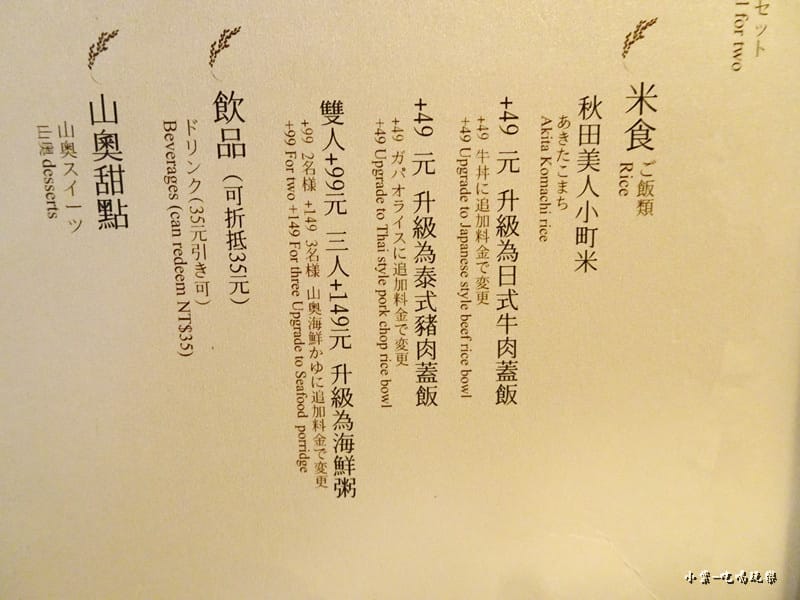 セット
l for two
米食 ご飯類
Rice
秋田美人小町米
あきたこまち
Akita Komachi rice
+49 元 升級為日式牛肉蓋飯
+49 牛丼に追加料金で変更
+49 Upgrade to Japanese style beef rice bowl
+49 元 升級為泰式豬肉蓋飯
+49 ガパオライスに追加料金で変更
+49 Upgrade to Thai style pork chop rice bowl
雙人+99元 三人+149元 升級為海鮮粥
+99 2名様 +149 3名様 山奧海鮮かゆに追加料金で変更
+99 For two +149 For three Upgrade to Seafood porridge
飲品（可折抵35元）
ドリンク(35元引き可)
Beverages (can redeem NT$35)
山奧甜點
山奧スイーツ
desserts
小葉-吃喝玩樂